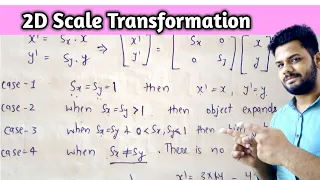 2D Scale Transformation
x' = Sx · x
y' = Sy · y
[x' y'] = [Sx 0 0 Sy] [x y]
case - 1 Sx = Sy = 1 then x' = x, y' = y.
case - 2 when Sx = Sy > 1 then object expands
case - 3 when Sx = Sy & 0 < Sx, Sy < 1 then
case - 4 when Sx ≠ Sy. There is no